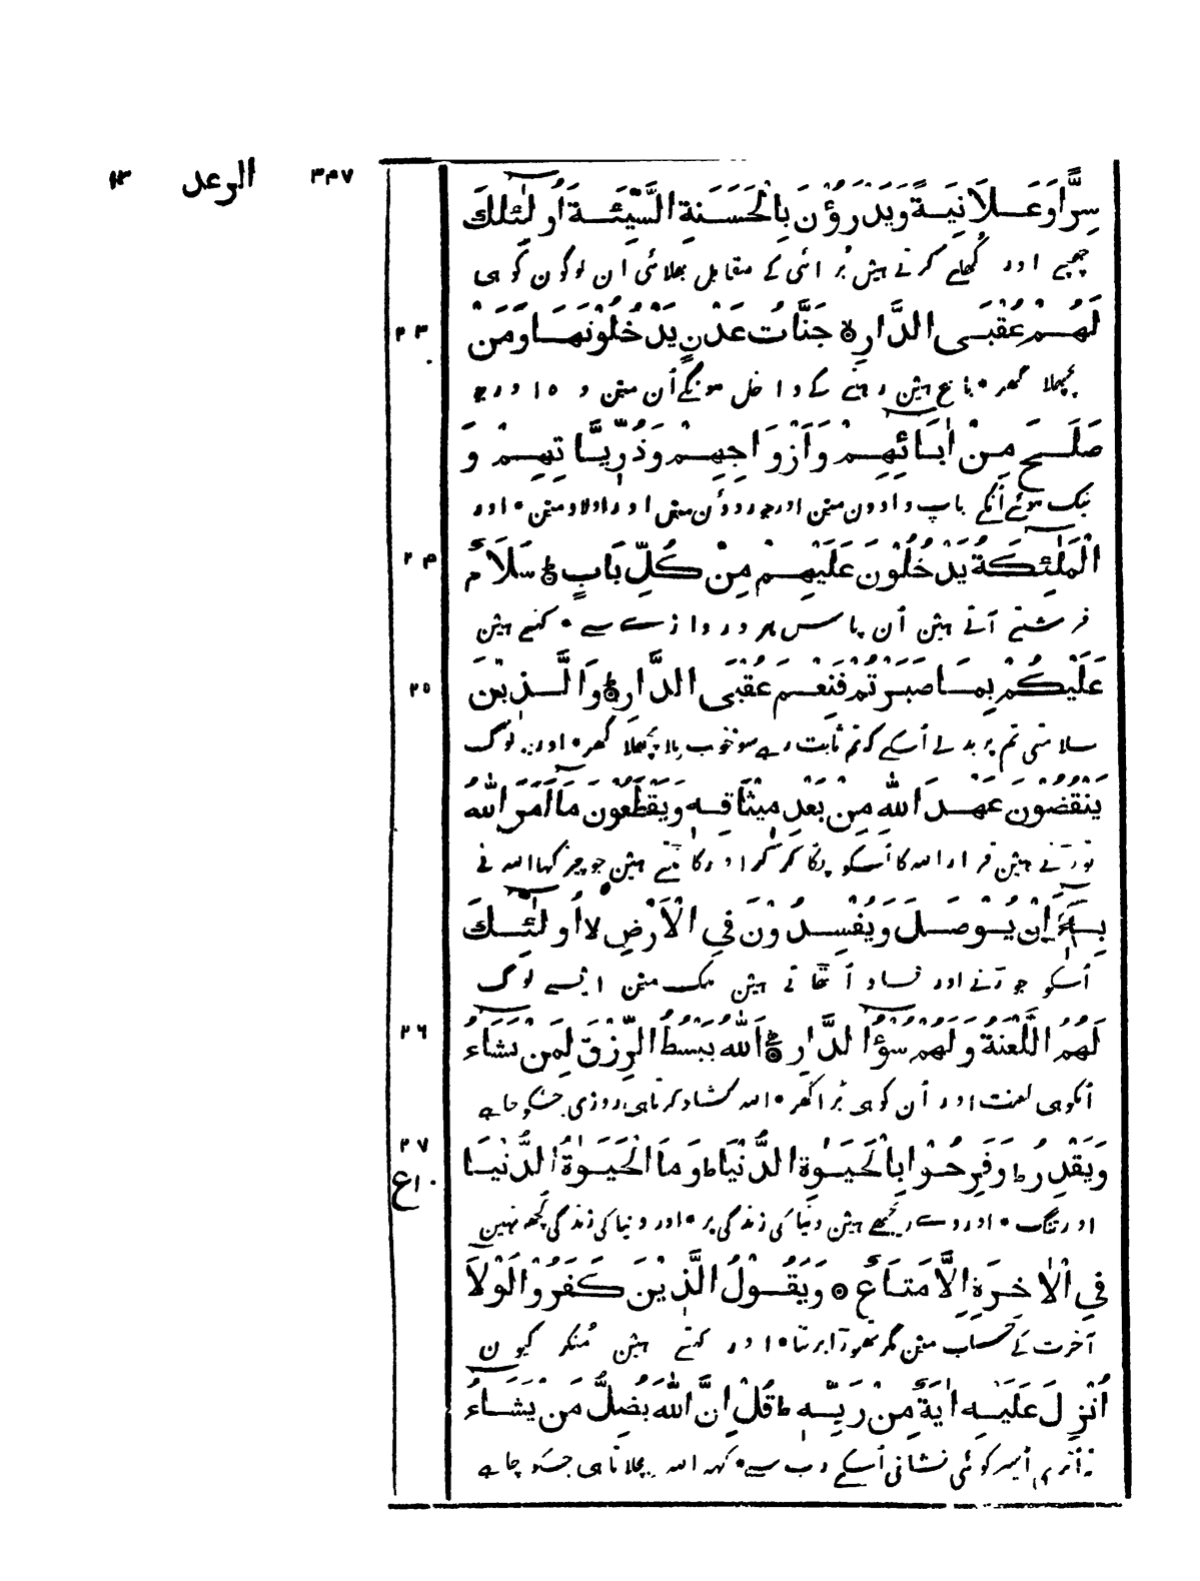 ۳۴۷ الرعد ۱۳
سِرًّا وَعَلَانِيَةً وَيَدْرَؤُنَ بِالْحَسَنَةِ السَّيِّئَةَ أُولٰئِكَ
چھپے اور کُھلے کرتے ہیں بُرائی کے مقابل بھلائی ان لوگون کو ہی
۲۳
لَهُمْ عُقْبَى الدَّارِ ۝ جَنَّاتُ عَدْنٍ يَدْخُلُوْنَهَا وَمَنْ
پچھلا گھر • باغ ہین رہنے کے داخل ہونگے اُن مین وہ اور جو
صَلَحَ مِنْ اٰبَائِهِمْ وَأَزْوَاجِهِمْ وَذُرِّيَّاتِهِمْ وَ
نیک ہوئے اُنکے باپ دادون مین اور جوروؤن مین اور اولاد مین • اور
۲۴
الْمَلٰئِكَةُ يَدْخُلُوْنَ عَلَيْهِمْ مِنْ كُلِّ بَابٍ ۝ سَلَامٌ
فرشتے آتے ہین اُن پاس ہر دروازے سے • کہتے ہین
۲۵
عَلَيْكُمْ بِمَا صَبَرْتُمْ فَنِعْمَ عُقْبَى الدَّارِ ۝ وَالَّذِيْنَ
سلامتی تم پر بدلے اُسکے کہ تم ثابت رہے سو خوب ملا پچھلا گھر • اور جو لوگ
يَنْقُضُوْنَ عَهْدَ اللّٰهِ مِنْ بَعْدِ مِيْثَاقِهٖ وَيَقْطَعُوْنَ مَا أَمَرَ اللّٰهُ
توڑتے ہین قرار اللہ کا اُسکو پکا کر کر اور کاٹتے ہین جو چیز کہا اللہ نے
بِهٖ أَنْ يُوْصَلَ وَيُفْسِدُوْنَ فِي الْأَرْضِ لا أُولٰئِكَ
اُسکو جوڑنے اور فساد اُٹھاتے ہین ملک مین ایسے لوگ
۲۶
لَهُمُ اللَّعْنَةُ وَلَهُمْ سُوْٓءُ الدَّارِ ۝ اَللّٰهُ يَبْسُطُ الرِّزْقَ لِمَنْ يَشَاءُ
اُنکو ہی لعنت اور اُن کو ہی بُرا گھر • اللہ کشادہ کرتا ہی روزی جسکو چاہے
۲۷
وَيَقْدِرُ ط وَفَرِحُوْا بِالْحَيَوٰةِ الدُّنْيَا ط وَمَا الْحَيَوٰةُ الدُّنْيَا
۱۰ع
اور تنگ • اور وے ریجھے ہین دنیا کی زندگی پر • اور دنیا کی زندگی کچھ نہین
فِي الْاٰخِرَةِ إِلَّا مَتَاعٌ ۝ وَيَقُوْلُ الَّذِيْنَ كَفَرُوْا لَوْلَا
آخرت کے حساب مین مگر تھوڑا برتنا • اور کہتے ہین مُنکر کیون
أُنْزِلَ عَلَيْهِ اٰيَةٌ مِنْ رَبِّهٖ ط قُلْ إِنَّ اللّٰهَ يُضِلُّ مَنْ يَشَاءُ
نہ اُتری اُسپر کوئی نشانی اُسکے رب سے • کہہ اللہ بچلاتا ہی جسکو چاہے